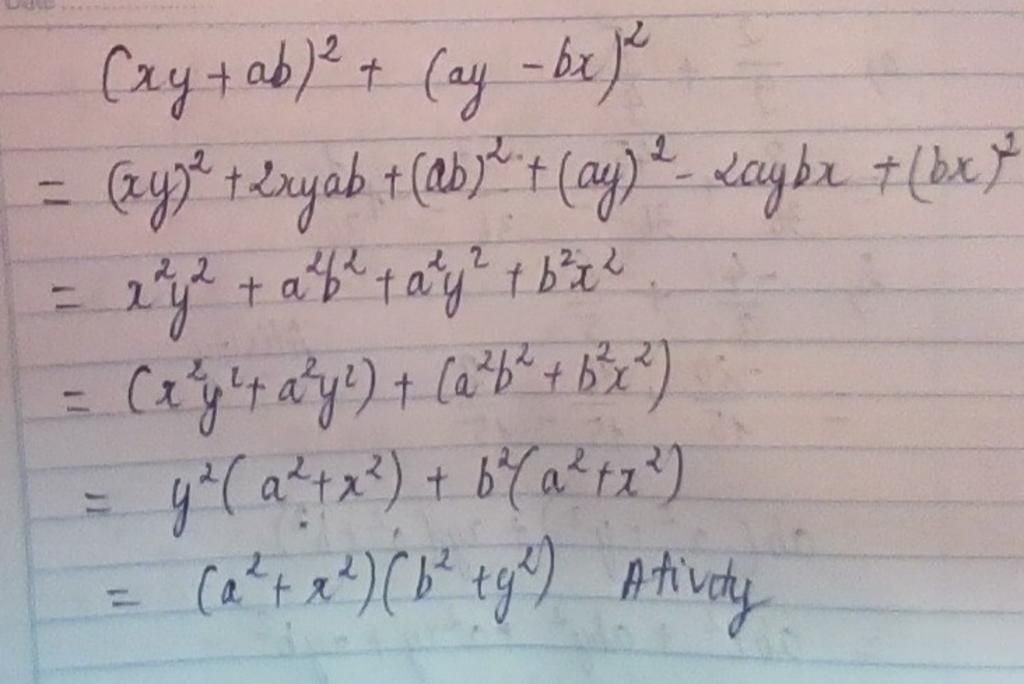 Date
(xy + ab)² + (ay - bx)²
= (xy)² + 2xyab + (ab)² + (ay)² - 2aybx + (bx)²
= x²y² + a²b² + a²y² + b²x²
= (x²y² + a²y²) + (a²b² + b²x²)
= y²(a² + x²) + b²(a² + x²)
= (a² + x²)(b² + y²)